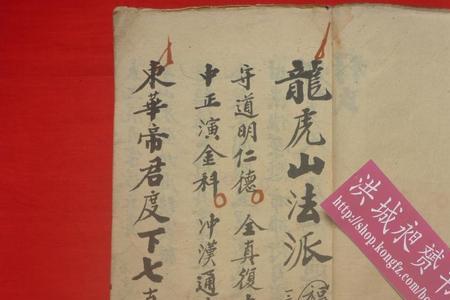 龍虎山法派
守道明仁德 全真復
中正演金科 冲漢通
東華帝君度下七
洪城昶赟书
http://shop.kongfz.com/